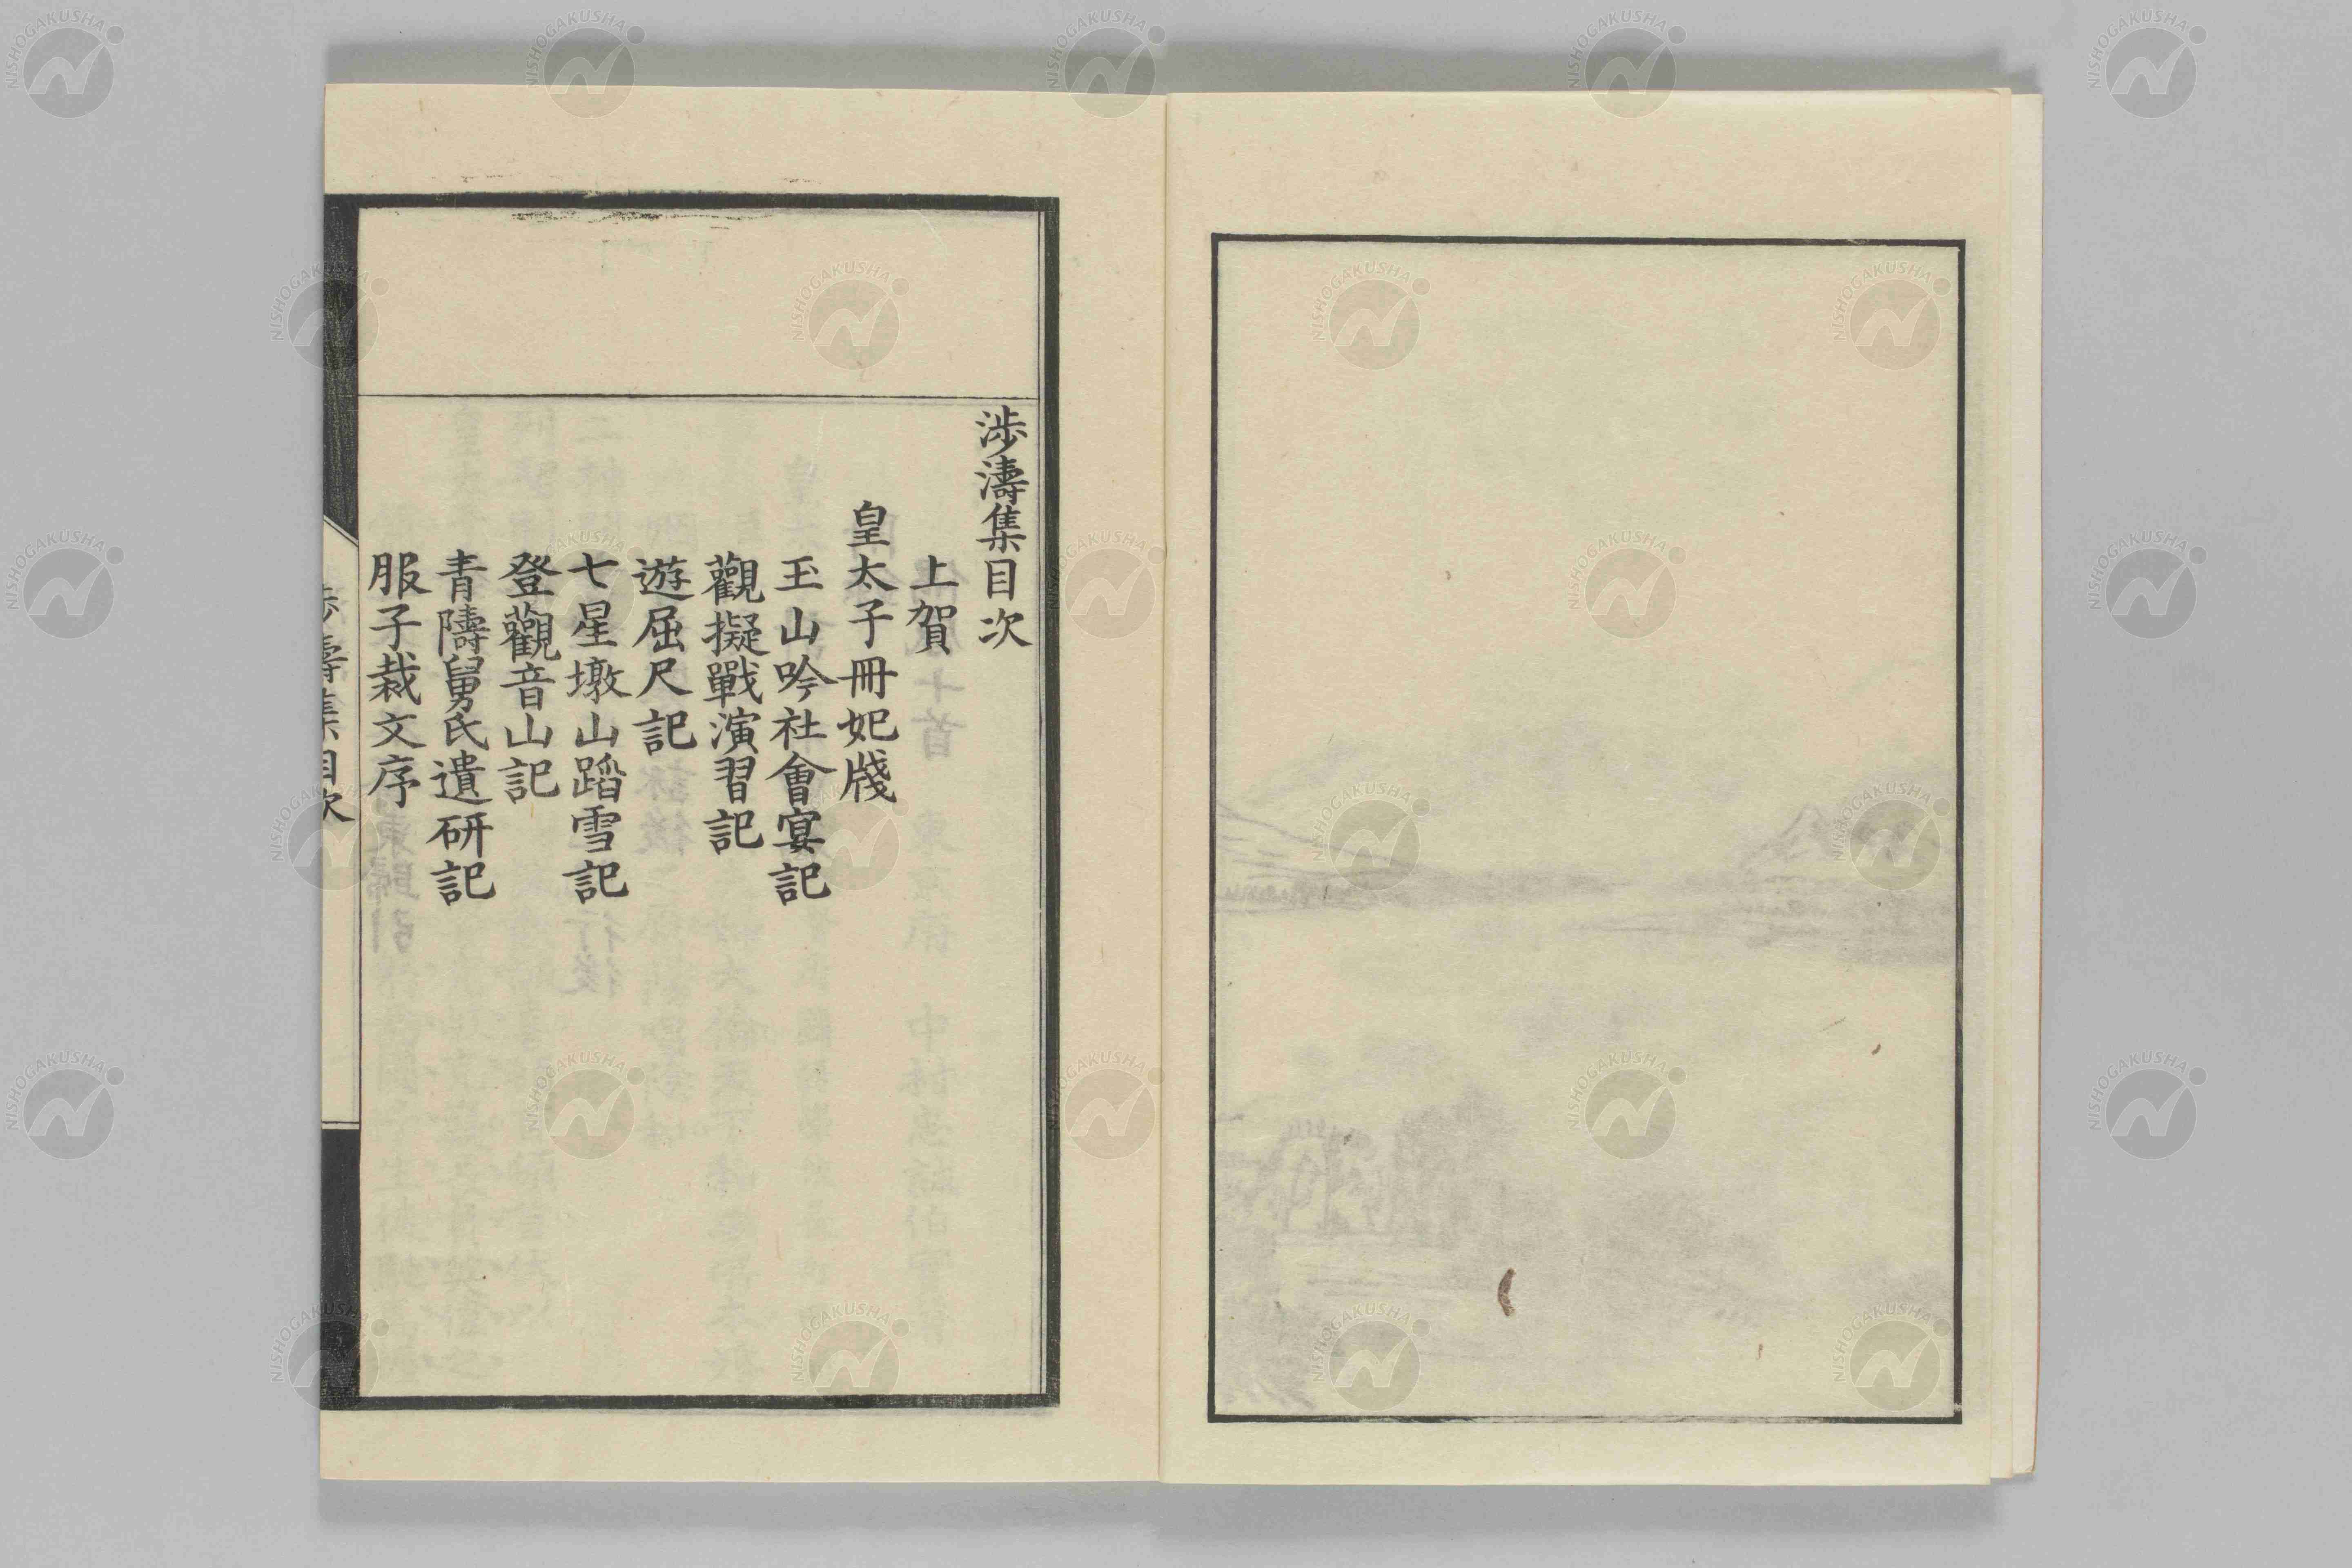 涉濤集目次
上賀
皇太子冊妃牋
玉山吟社會宴記
觀擬戰演習記
遊屈尺記
七星墩山蹈雪記
登觀音山記
青隯舅氏遺研記
服子栽文序
涉濤集目次
NISHOGAKUSHA